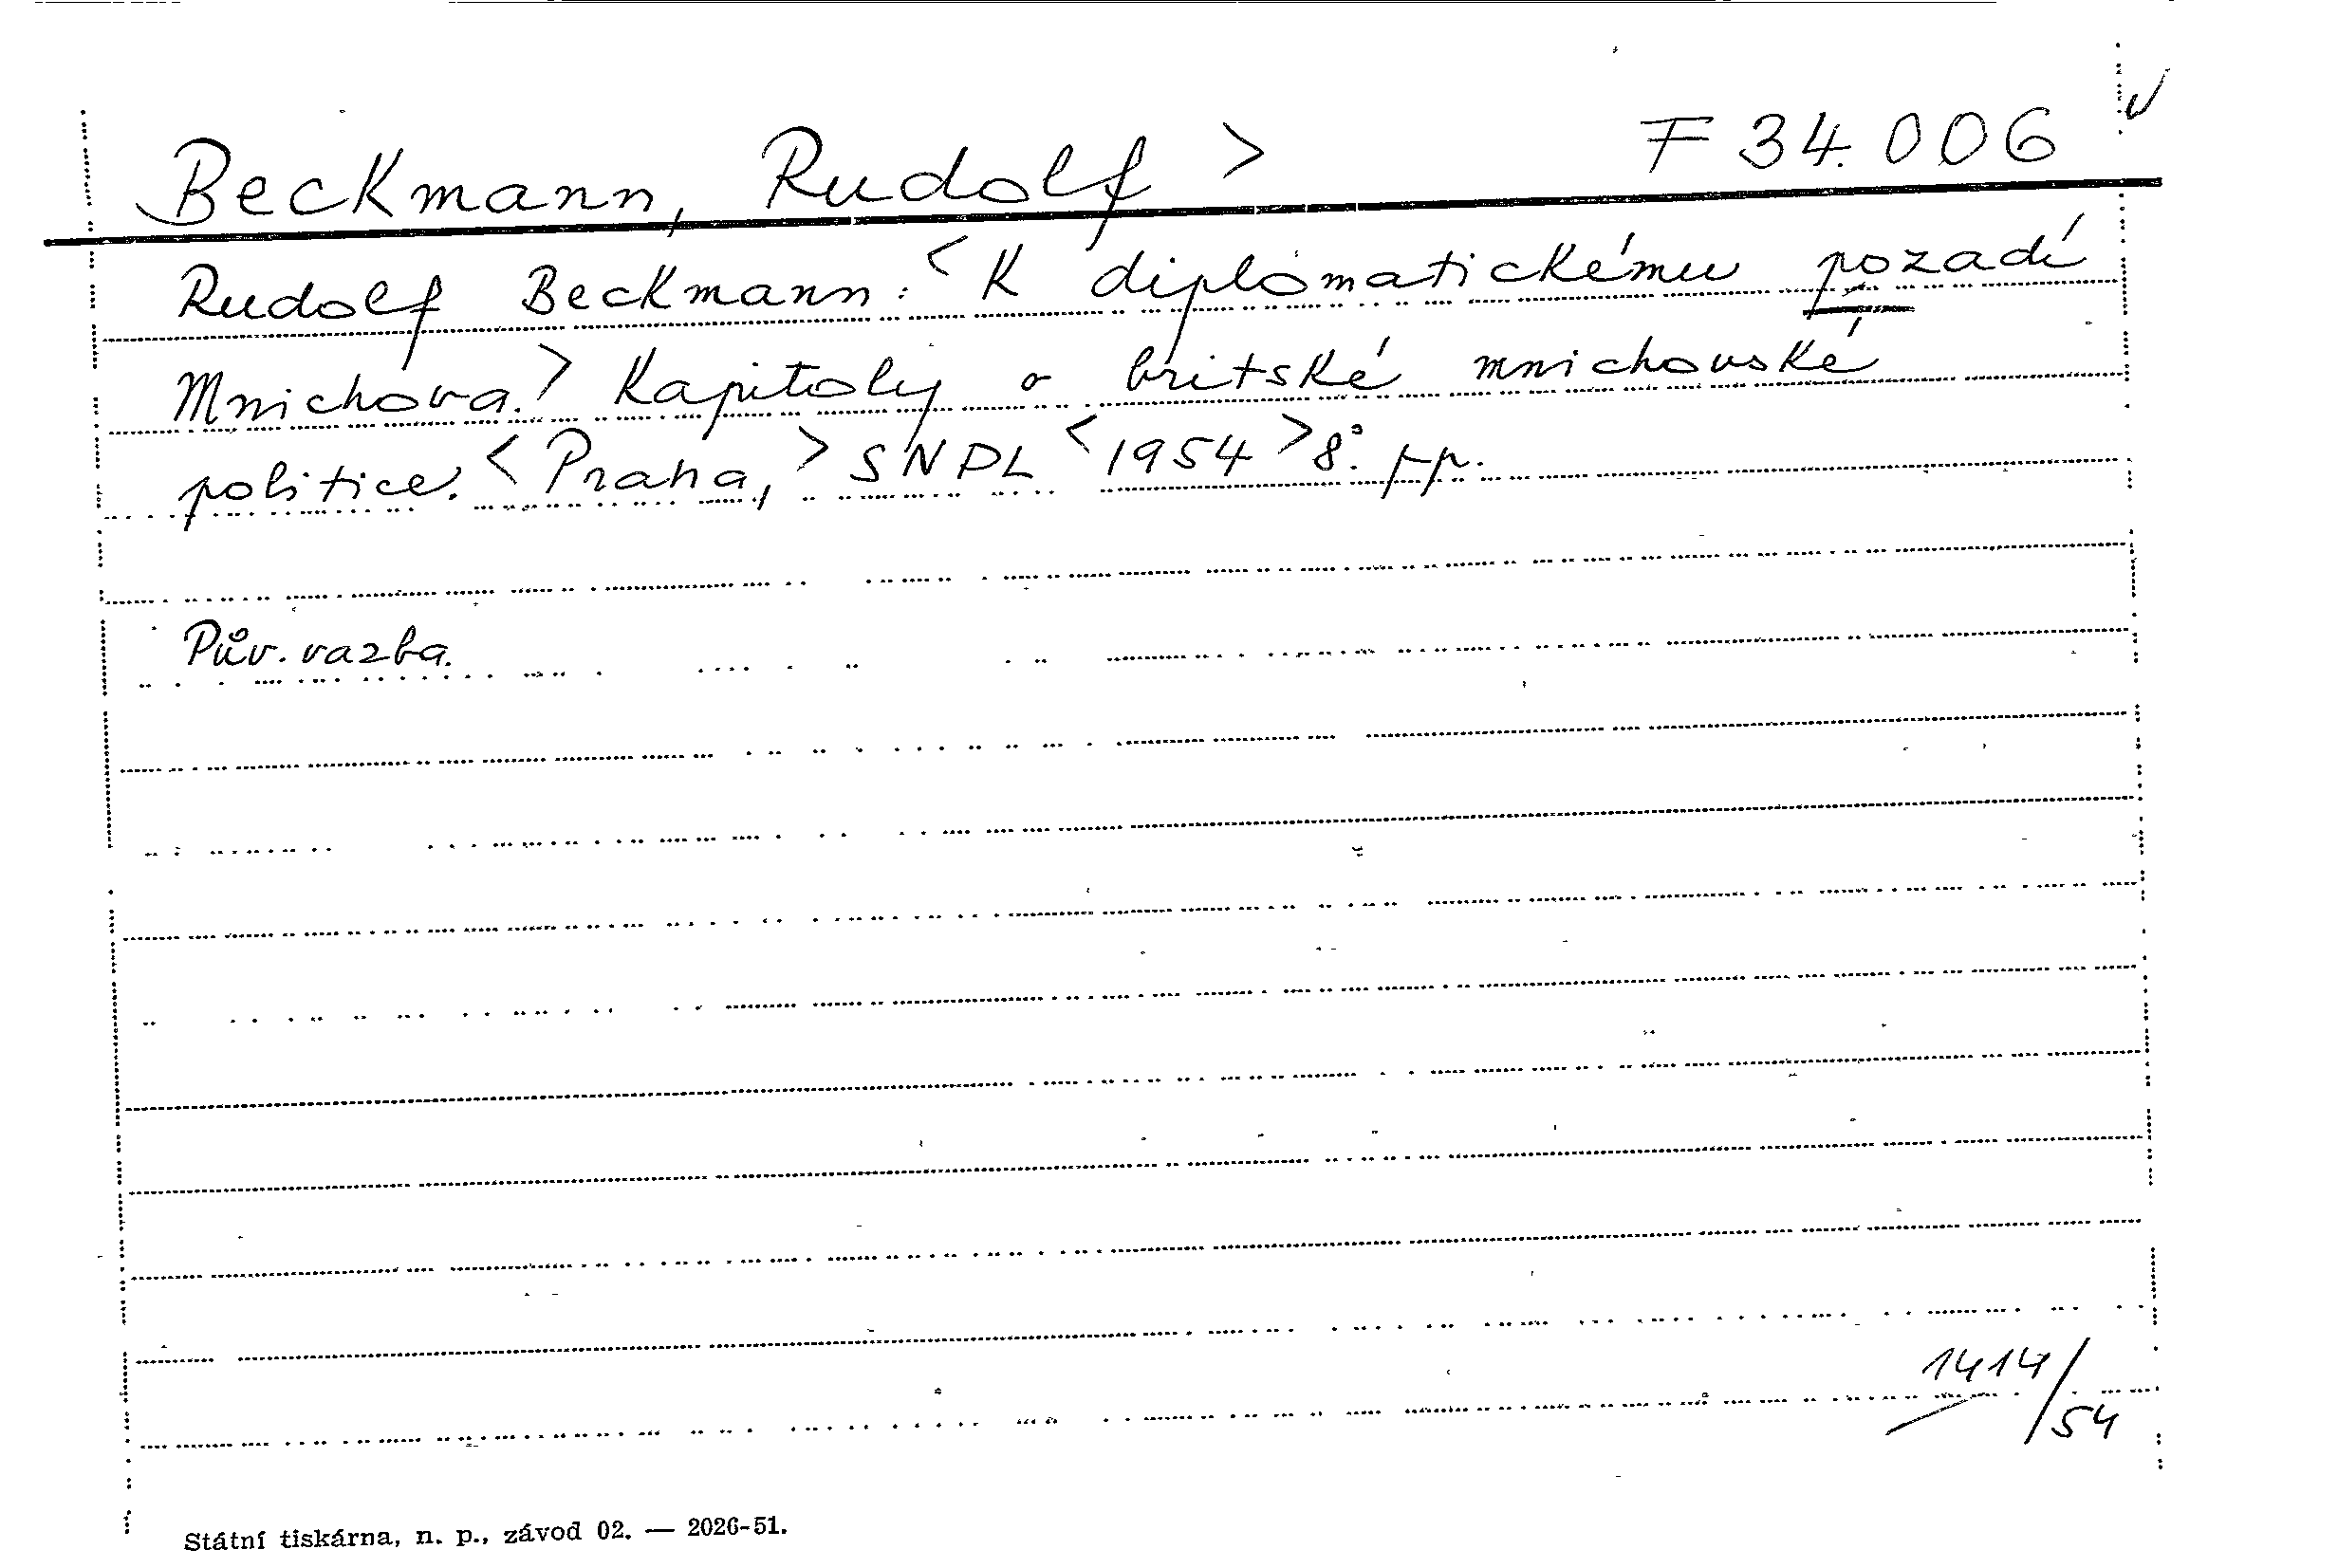 Beckmann, Rudolf > F 34.006
Rudolf Beckmann: <K diplomatickému pozadí
Mnichova.> Kapitoly o britské mnichovské
politice. <Praha,> SNPL <1954> 8°. pp.
Pův. vazba.
1414/54
Státní tiskárna, n. p., závod 02. — 2026-51.